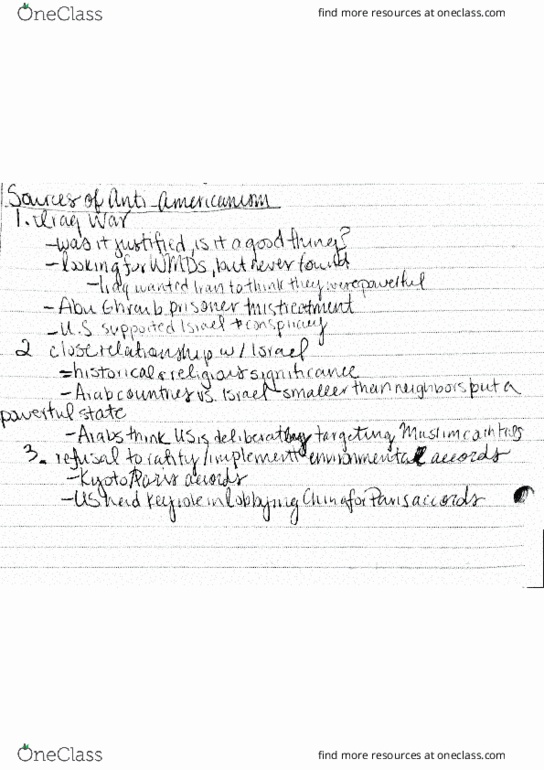 OneClass
find more resources at oneclass.com
Sources of Anti-Americanism
1. Iraq War
-was it justified, is it a good thing?
-looking for WMDs, but never found
-Iraq wanted Iran to think they were powerful
-Abu Ghraib prisoner mistreatment
-U.S supported Israel + conspiracy
2 close relationship w/ Israel
=historical & religious significance
-Arab countries vs. Israel-smaller than neighbors but a
powerful state
-Arabs think US is deliberately targeting Muslim countries
3. refusal to ratify/implement environmental accords
-Kyoto, Paris accords
-US had key role in lobbying China for Paris accords
OneClass
find more resources at oneclass.com